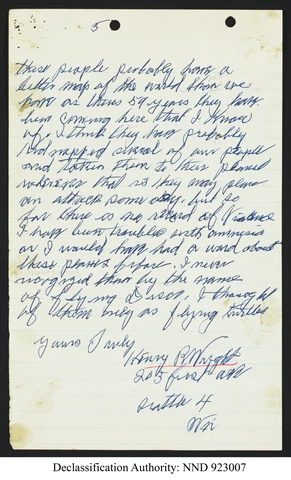 5
these people probably have a
better map of the world than we
have as thees 54 years they have
been coming here that I know
of. I think they have probably
kidnapped several of our people
and taken them to their planet
wherever that is they may plan
an attack some day. but so
far there is no record of
I have been troubled with amnesia
or I would have had a word about
these planes before. I never
recognized them by the name
of flying discs, I thought
of them only as flying turtles
Yours Truly
Henry R. Wright
205 first ave
Seattle 4
Wn
Declassification Authority: NND 923007